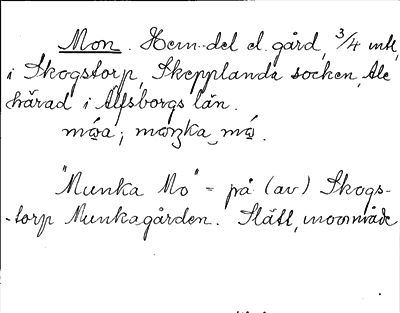 Mon. Hem.del el. gård, 3/4 mtl,
i Skogstorp, Skepplanda socken, Ale
härad i Älfsborgs län.
"Munka Mo" = på (av) Skogs-
-torp Munkagården. Slätt,